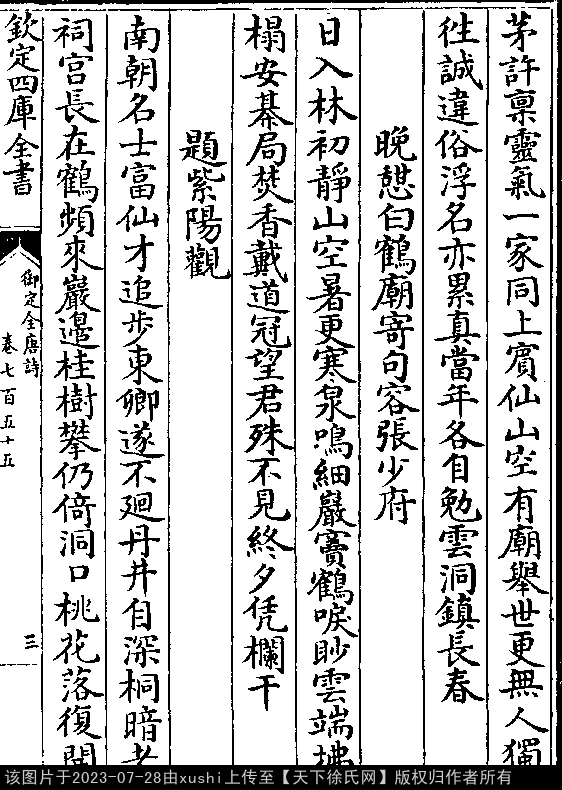 茅許禀靈氣一家同上賓仙山空有廟舉世更無人獨
徃誠違俗浮名亦累真當年各自勉雲洞鎮長春
晚憇白鶴廟寄句容張少府
日入林初靜山空暑更寒泉鳴細巖竇鶴唳眇雲端拂
榻安棊局焚香戴道冠望君殊不見終夕凭欄干
題紫陽觀
南朝名士富仙才追步東卿遂不廻丹井自深桐暗老
祠宫長在鶴頻來巖邉桂樹攀仍倚洞口桃花落復開
欽定四庫全書
御定全唐詩
卷七百五十五
三
该图片于2023-07-28由xushi上传至【天下徐氏网】版权归作者所有